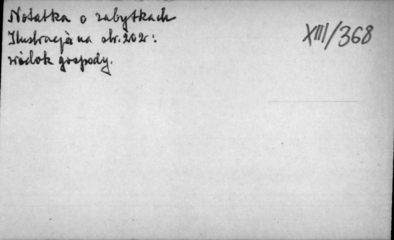 Notatka o zabytkach
XIII/368
Ilustracja na str. 202:
widok gospody.